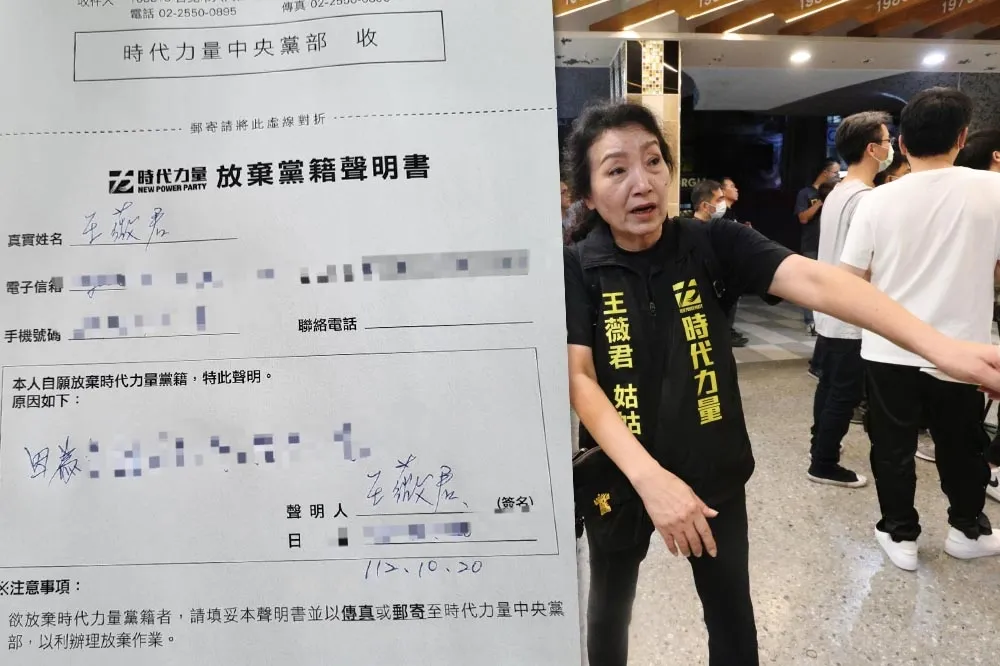 收件人
電話 02-2550-0895 傳真 02-2550-
時代力量中央黨部 收
郵寄請將此虛線對折
時代力量 NEW POWER PARTY 放棄黨籍聲明書
真實姓名 王薇君
電子信箱
手機號碼 聯絡電話
本人自願放棄時代力量黨籍，特此聲明。
原因如下：
聲明人 王薇君 (簽名)
日
112.10.20
※注意事項：
欲放棄時代力量黨籍者，請填妥本聲明書並以傳真或郵寄至時代力量中央黨
部，以利辦理放棄作業。
時代力量
王薇君 姑姑